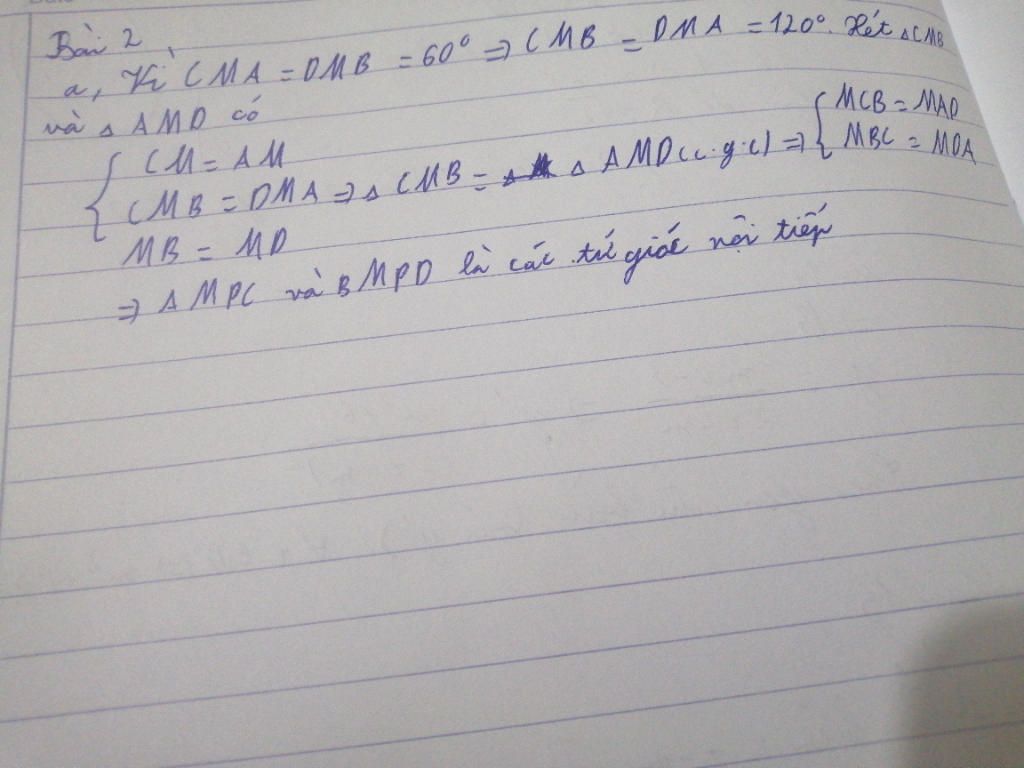 Bài 2
a, Vì CMA = DMB = 60° => CMB = DMA = 120°. Xét △CMB
và △ AMD có
{ CM = AM
CMB = DMA => △ CMB = △ AMD (c.g.c) => { MCB = MAD
MBC = MDA
MB = MD
=> AMPC và BMPD là các tứ giác nội tiếp